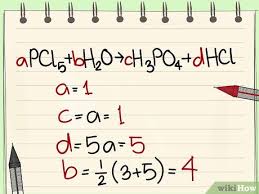 aPCl₅+bH₂O→cH₃PO₄+dHCl
a=1
c=a=1
d=5a=5
b=½(3+5)=4
wikiHow